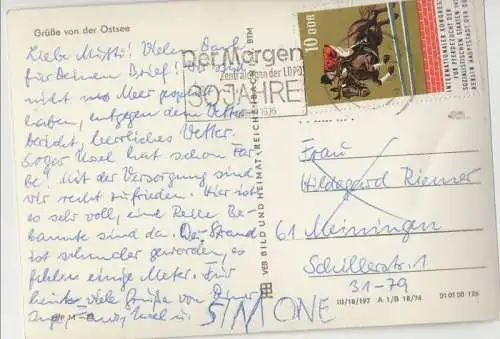 Grüße von der Ostsee
Liebe Mutti! Vielen Dank
für Deinen Brief!
nicht Meer
haben, entgegen dem Wetter-
bericht, herrliches Wetter.
Sogar hat schon Far-
be! Mit der Versorgung sind
wir recht zufrieden. Hier ist
es sehr voll, eine Reihe Be-
kannte sind da. Der Strand
ist schmaler geworden, es
fehlen einige Meter. Für
heute viele Grüße von Deiner
u.
SIMONE
VEB BILD UND HEIMAT · REICHENBACH
BTM
Der Morgen
Zentralorgan der LDPD
30 JAHRE
10 DDR
INTERNATIONALER KONGRESS
FÜR PFERDEZUCHT DER
SOZIALISTISCHEN STAATEN
BERLIN HAUPTSTADT DER DDR
Frau
Hildegard Riemer
61 Meiningen
Schillerstr. 1
31-79
III/18/197 A 1/B 18/74 01 01 08 126